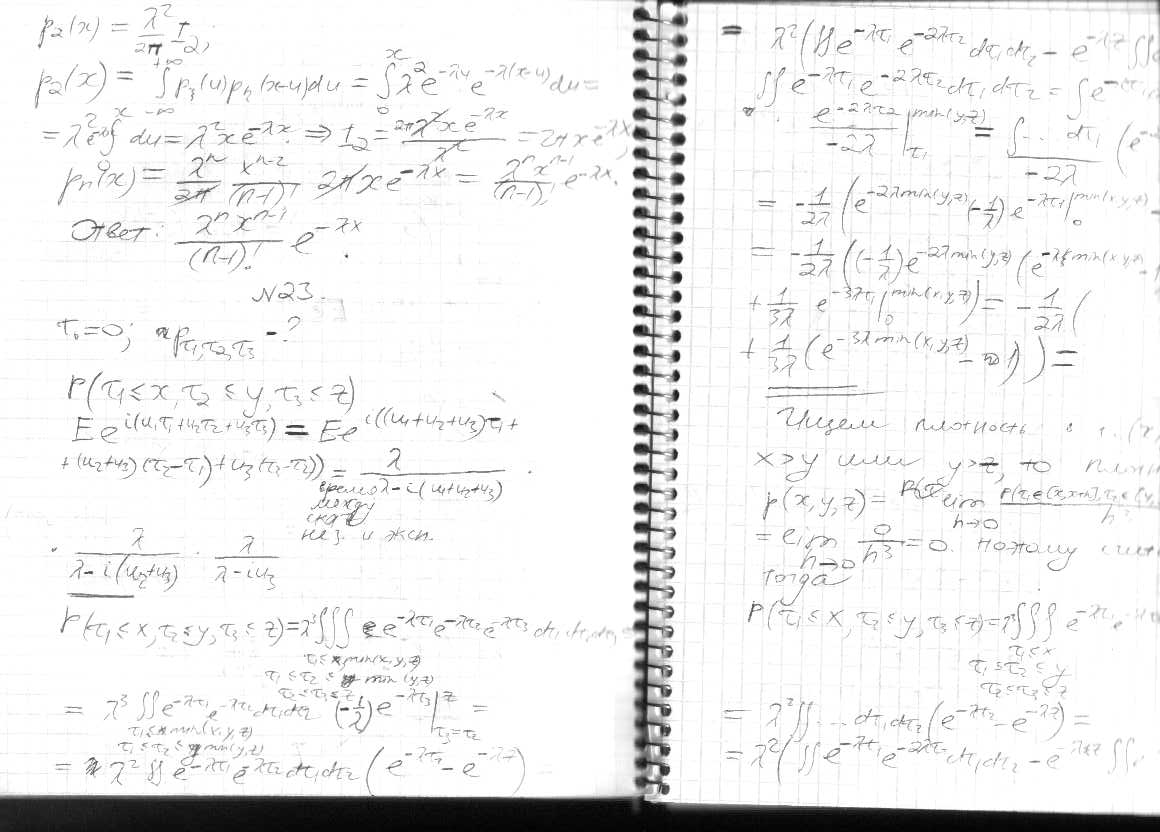 p₂(x) = λ²/2π t₂;
p₂(x) = ∫_{-∞}^{+∞} p₁(u)p₁(x-u)du = ∫_0^x λ²e^{-λu} e^{-λ(x-u)}du =
= λ²e^{-λx}∫_0^x du = λ²xe^{-λx} ⇒ t₂ = 2πλ²xe^{-λx}/λ² = 2πxe^{-λx}
pₙ(x) = λⁿ/2π x^{n-2}/(n-1)! 2πxe^{-λx} = λⁿx^{n-1}/(n-1)! e^{-λx}.
Ответ: λⁿx^{n-1}/(n-1)! e^{-λx}.
N23.
τ₀=0; p_{τ₁,τ₂,τ₃} -?
P(τ₁≤x, τ₂≤y, τ₃≤z)
Ee^{i(u₁τ₁+u₂τ₂+u₃τ₃)} = Ee^{i((u₁+u₂+u₃)τ₁+
+(u₂+u₃)(τ₂-τ₁)+u₃(τ₃-τ₂))} = λ/(λ-i(u₁+u₂+u₃)) ·
время
между
нез. и эксп.
· λ/(λ-i(u₂+u₃)) · λ/(λ-iu₃)
P(τ₁≤x, τ₂≤y, τ₃≤z) = λ³∭ e^{-λτ₁}e^{-λτ₂}e^{-λτ₃} dτ₁dτ₂dτ₃ =
τ₁≤min(x,y,z)
τ₁≤τ₂≤min(y,z)
τ₂≤τ₃≤z
= λ³∬e^{-λτ₁}e^{-λτ₂}dτ₁dτ₂ (-1/λ)e^{-λτ₃}|_{τ₃=τ₂}^z =
τ₁≤min(x,y,z)
τ₁≤τ₂≤min(y,z)
= λ²∬e^{-λτ₁}e^{-λτ₂}dτ₁dτ₂(e^{-λτ₂}-e^{-λz})
= λ²(∬e^{-λτ₁}e^{-2λτ₂}dτ₁dτ₂ - e^{-λz}∬
∬e^{-λτ₁}e^{-2λτ₂}dτ₁dτ₂ = ∫e^{-λτ₁}
· e^{-2λτ₂}/-2λ |_{τ₁}^{min(y,z)} = ∫... dτ₁/-2λ (e^{-2
= -1/2λ (e^{-2λmin(y,z)}(-1/λ)e^{-λτ₁}|_0^{min(x,y,z)} -
= -1/2λ ((-1/λ)e^{-2λmin(y,z)}(e^{-λmin(x,y,z)} -1
+ 1/3λ e^{-3λτ₁}|_0^{min(x,y,z)}) = -1/2λ (
+ 1/3λ (e^{-3λmin(x,y,z)} - 1)) =
Ищем плотность
x>y или y>z, то
p(x,y,z) = lim_{h→0} P(τ₁∈[x,x+h],τ₂∈[y,/h³
= lim_{h→0} 0/h³ = 0. Поэтому
Тогда
P(τ₁≤x, τ₂≤y, τ₃≤z) = λ³∭ e^{-λτ₁}
τ₁≤x
τ₁≤τ₂≤y
τ₂≤τ₃≤z
= λ²∬... dτ₁dτ₂(e^{-λτ₂}-e^{-λz}) =
= λ²(∬e^{-λτ₁}e^{-2λτ₂}dτ₁dτ₂ - e^{-λz}∬